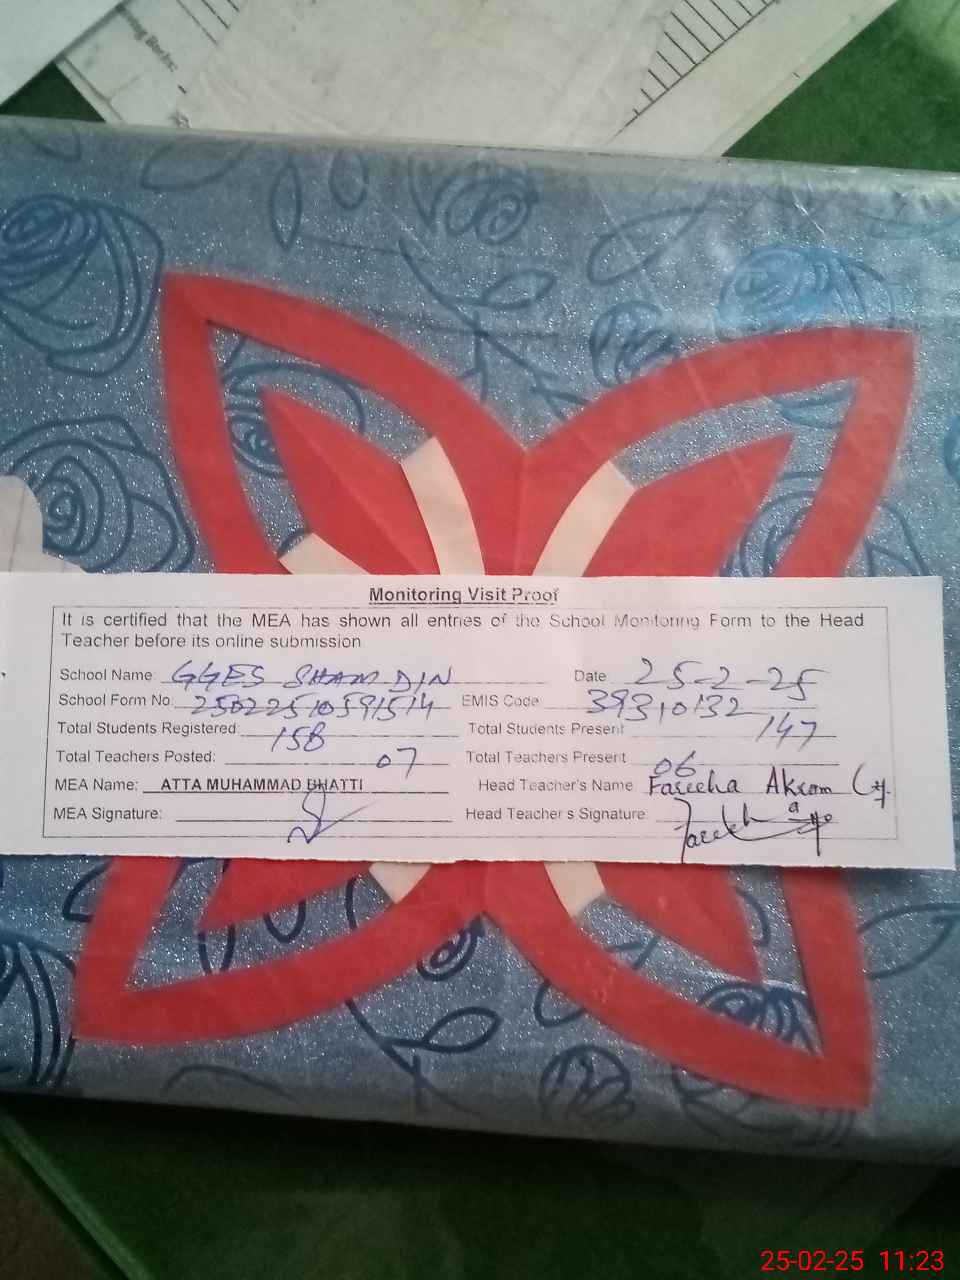 Monitoring Visit Proof
It is certified that the MEA has shown all entries of the School Monitoring Form to the Head
Teacher before its online submission
School Name: GGES SHAM DIN Date 25-2-25
School Form No. 25022510591514 EMIS Code 39310132
Total Students Registered: 158 Total Students Present 147
Total Teachers Posted: 07 Total Teachers Present 06
MEA Name: ATTA MUHAMMAD BHATTI Head Teacher's Name Fareeha Akram
MEA Signature: Head Teacher's Signature
25-02-25 11:23